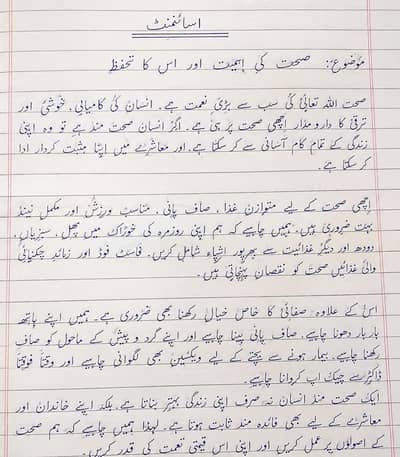 اسائنمنٹ
موضوع: صحت کی اہمیت اور اس کا تحفظ
صحت اللہ تعالیٰ کی سب سے بڑی نعمت ہے۔ انسان کی کامیابی، خوشی اور
ترقی کا دارومدار اچھی صحت پر ہی ہے۔ اگر انسان صحت مند ہے تو وہ اپنی
زندگی کے تمام کام آسانی سے کر سکتا ہے۔ اور معاشرے میں اپنا مثبت کردار ادا
کر سکتا ہے۔
اچھی صحت کے لیے متوازن غذا، صاف پانی، مناسب ورزش اور مکمل نیند
بہت ضروری ہیں۔ ہمیں چاہیے کہ ہم اپنی روزمرہ کی خوراک میں پھل، سبزیاں،
دودھ اور دیگر غذائیت سے بھرپور اشیاء شامل کریں۔ فاسٹ فوڈ اور زیادہ چکنائی
والی غذائیں صحت کو نقصان پہنچاتی ہیں۔
اس کے علاوہ، صفائی کا خاص خیال رکھنا بھی ضروری ہے۔ ہمیں اپنے ہاتھ
بار بار دھونا چاہیے، صاف پانی پینا چاہیے اور اپنے گرد و پیش کے ماحول کو صاف
رکھنا چاہیے۔ بیمار ہونے سے بچنے کے لیے ویکسین بھی لگوانی چاہیے اور وقتاً فوقتاً
ڈاکٹر سے چیک اپ کروانا چاہیے۔
ایک صحت مند انسان نہ صرف اپنی زندگی بہتر بناتا ہے، بلکہ اپنے خاندان اور
معاشرے کے لیے بھی فائدہ مند ثابت ہوتا ہے۔ لہٰذا ہمیں چاہیے کہ ہم صحت
کے اصولوں پر عمل کریں اور اپنی اس قیمتی نعمت کی قدر کریں۔